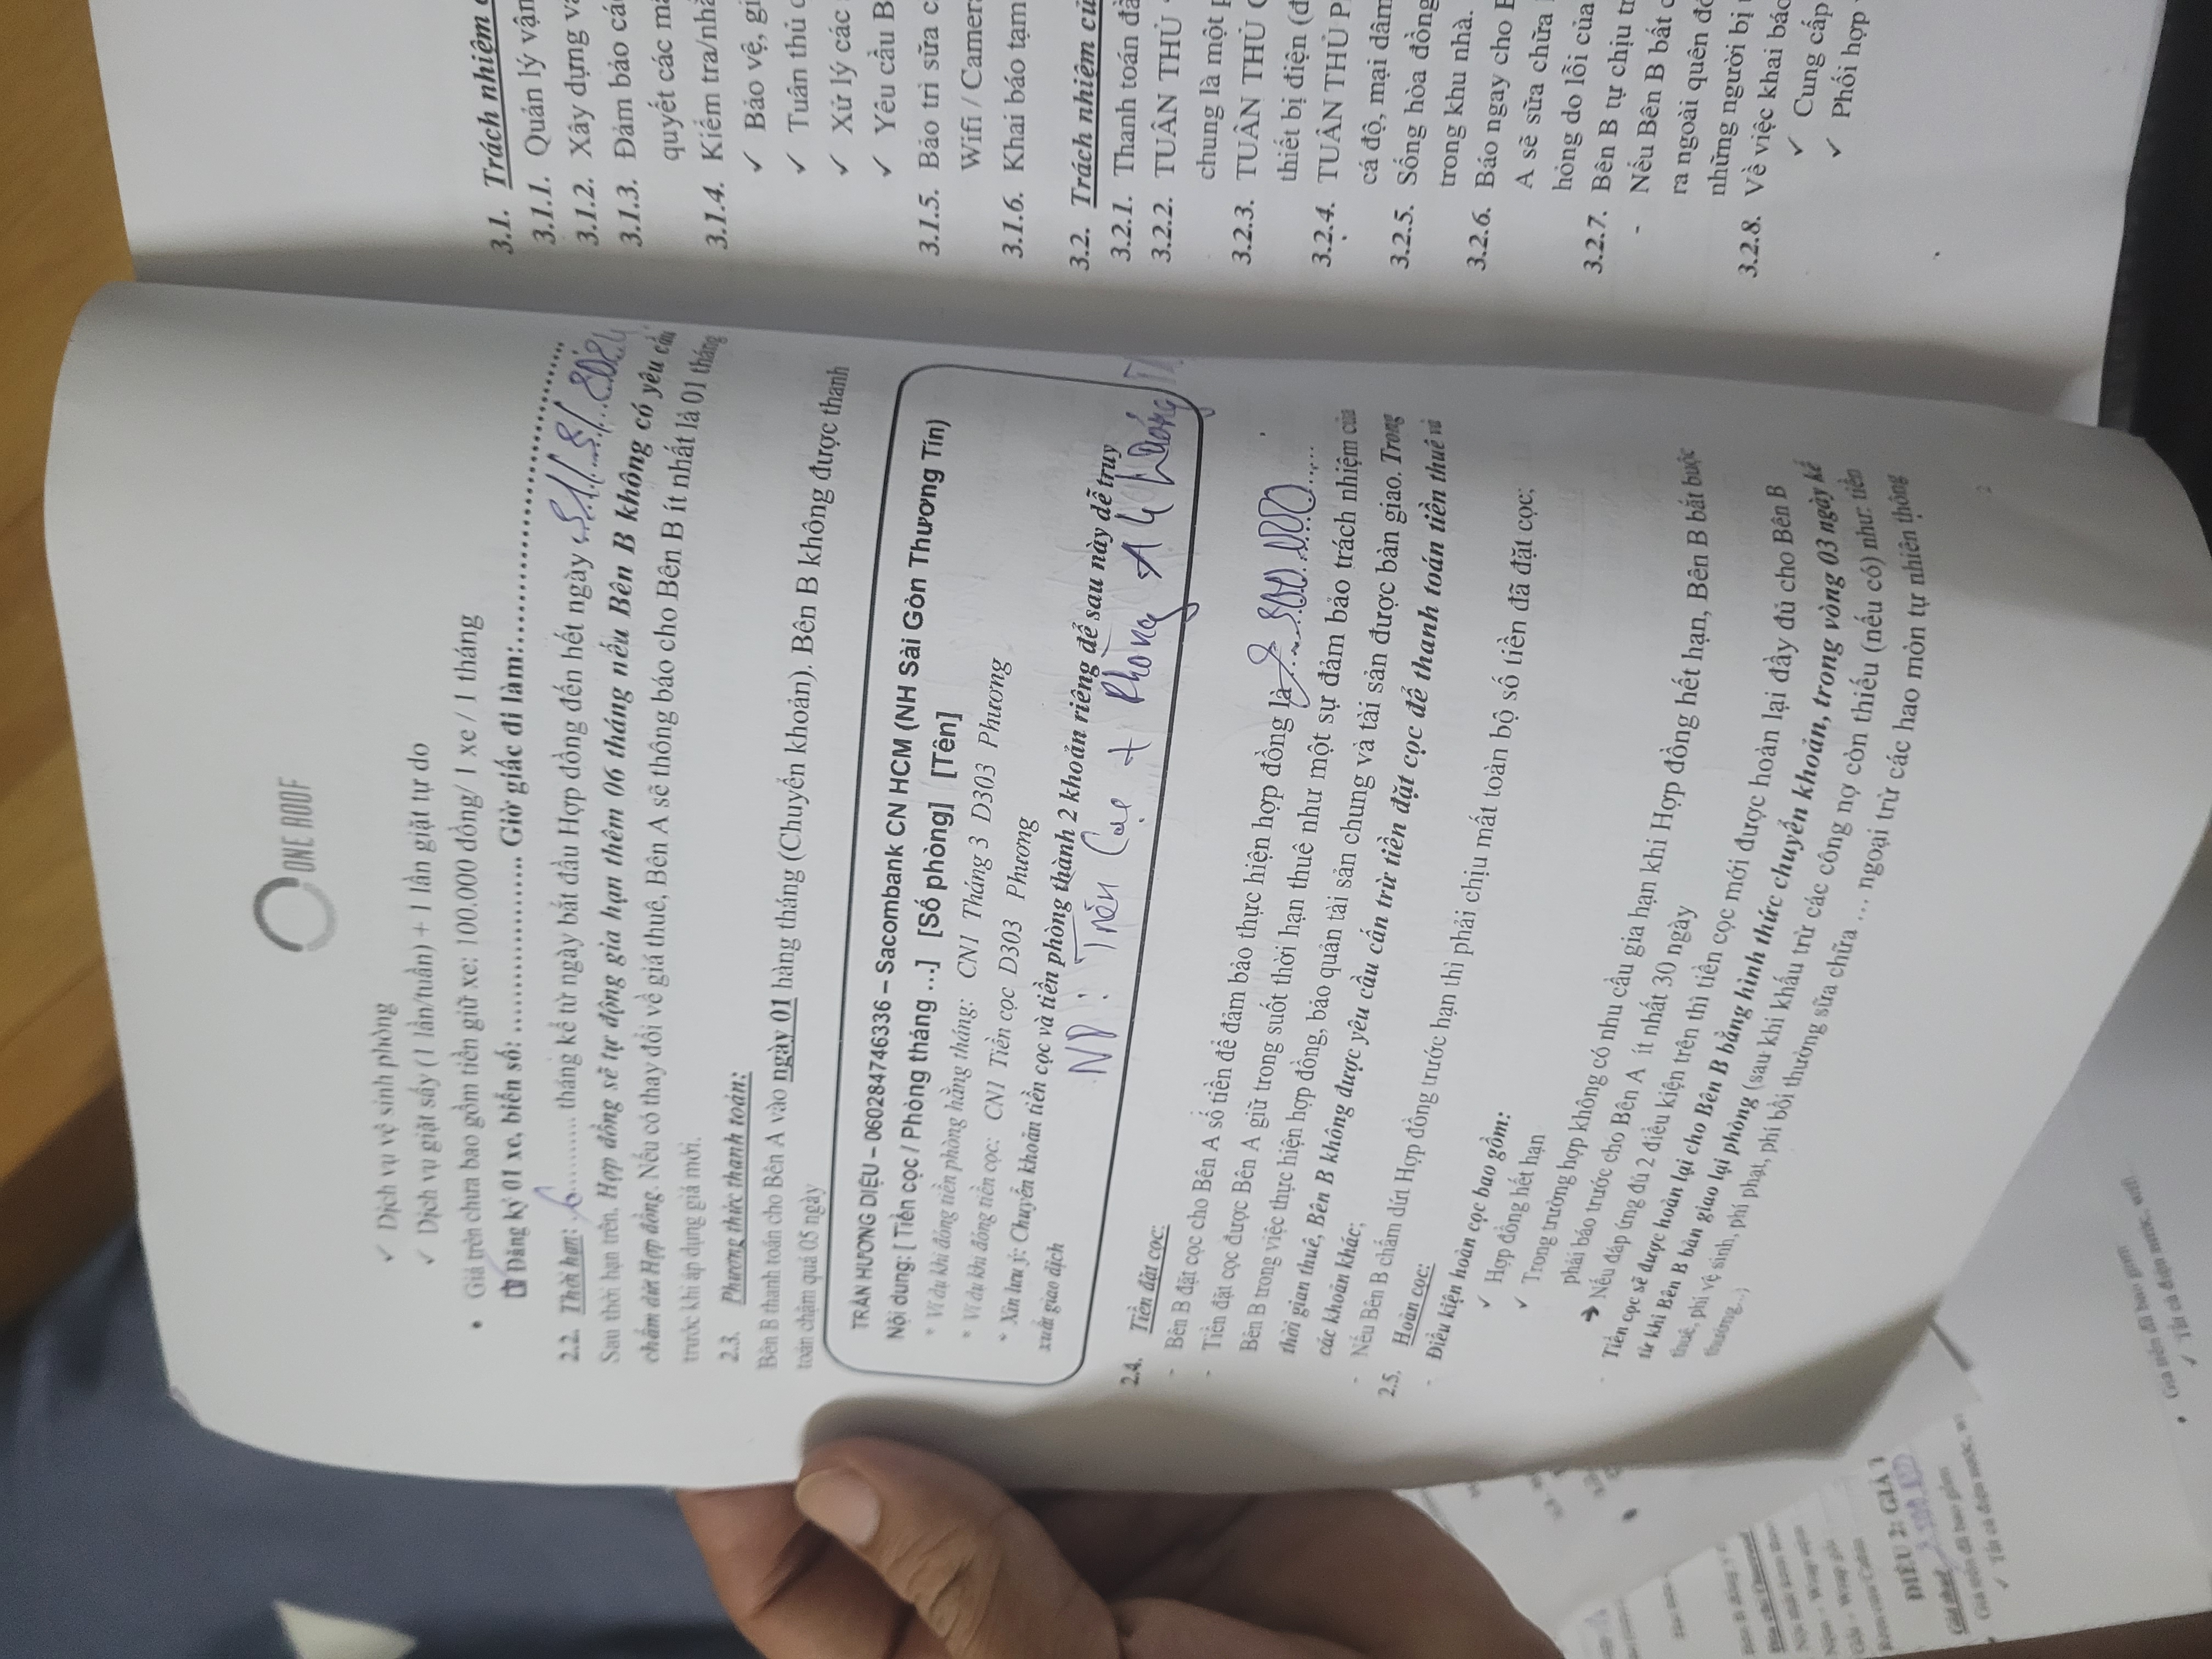 ONE ROOF
✓ Dịch vụ vệ sinh phòng
✓ Dịch vụ giặt sấy (1 lần/tuần) + 1 lần giặt tự do
• Giá trên chưa bao gồm tiền giữ xe: 100.000 đồng/ 1 xe / 1 tháng
Đăng ký 01 xe, biển số: .......................... Giờ giấc đi làm:..........................
2.2. Thời hạn: 6 tháng kể từ ngày bắt đầu Hợp đồng đến hết ngày
Sau thời hạn trên, Hợp đồng sẽ tự động gia hạn thêm 06 tháng nếu Bên B không có yêu cầu
chấm dứt Hợp đồng. Nếu có thay đổi về giá thuê, Bên A sẽ thông báo cho Bên B ít nhất là 01 tháng
trước khi áp dụng giá mới.
2.3. Phương thức thanh toán:
Bên B thanh toán cho Bên A vào ngày 01 hàng tháng (Chuyển khoản). Bên B không được thanh
toán chậm quá 05 ngày
TRẦN HƯƠNG DIỆU – 060284746336 – Sacombank CN HCM (NH Sài Gòn Thương Tín)
Nội dung: [ Tiền cọc / Phòng tháng ...] [Số phòng] [Tên]
* Ví dụ khi đóng tiền phòng hằng tháng: CN1 Tháng 3 D303 Phương
* Ví dụ khi đóng tiền cọc: CN1 Tiền cọc D303 Phương
* Xin lưu ý: Chuyển khoản tiền cọc và tiền phòng thành 2 khoản riêng để sau này dễ truy
xuất giao dịch
ND: Tiền Cọc + Phòng
2.4. Tiền đặt cọc:
- Bên B đặt cọc cho Bên A số tiền để đảm bảo thực hiện hợp đồng là
- Tiền đặt cọc được Bên A giữ trong suốt thời hạn thuê như một sự đảm bảo trách nhiệm của
Bên B trong việc thực hiện hợp đồng, bảo quản tài sản chung và tài sản được bàn giao. Trong
thời gian thuê, Bên B không được yêu cầu cấn trừ tiền đặt cọc để thanh toán tiền thuê và
các khoản khác;
- Nếu Bên B chấm dứt Hợp đồng trước hạn thì phải chịu mất toàn bộ số tiền đã đặt cọc;
2.5. Hoàn cọc:
- Điều kiện hoàn cọc bao gồm:
✓ Hợp đồng hết hạn
✓ Trong trường hợp không có nhu cầu gia hạn khi Hợp đồng hết hạn, Bên B bắt buộc
phải báo trước cho Bên A ít nhất 30 ngày
➔ Nếu đáp ứng đủ 2 điều kiện trên thì tiền cọc mới được hoàn lại đầy đủ cho Bên B
- Tiền cọc sẽ được hoàn lại cho Bên B bằng hình thức chuyển khoản, trong vòng 03 ngày kể
từ khi Bên B bàn giao lại phòng (sau khi khấu trừ các công nợ còn thiếu (nếu có) như: tiền
thuê, phí vệ sinh, phí phạt, phí bồi thường sữa chữa ... ngoại trừ các hao mòn tự nhiên thông
thường...)
2
3.1. Trách nhiệm
3.1.1. Quản lý vận
3.1.2. Xây dựng
3.1.3. Đảm bảo
quyết các
3.1.4. Kiểm tra/nhắ
✓ Bảo vệ,
✓ Tuân thủ
✓ Xử lý các
✓ Yêu cầu B
3.1.5. Bảo trì sữa
Wifi / Camer
3.1.6. Khai báo tạm
3.2. Trách nhiệm
3.2.1. Thanh toán
3.2.2. TUÂN THỦ
chung là một
3.2.3. TUÂN THỦ
thiết bị điện
3.2.4. TUÂN THỦ
cá độ, mại dâm
3.2.5. Sống hòa đồng
trong khu nhà.
3.2.6. Báo ngay cho
A sẽ sữa chữa
hỏng do lỗi của
3.2.7. Bên B tự chịu
- Nếu Bên B bất
ra ngoài quên
những người bị
3.2.8. Về việc khai báo
✓ Cung cấp
✓ Phối hợp
ĐIỀU 2: GIÁ